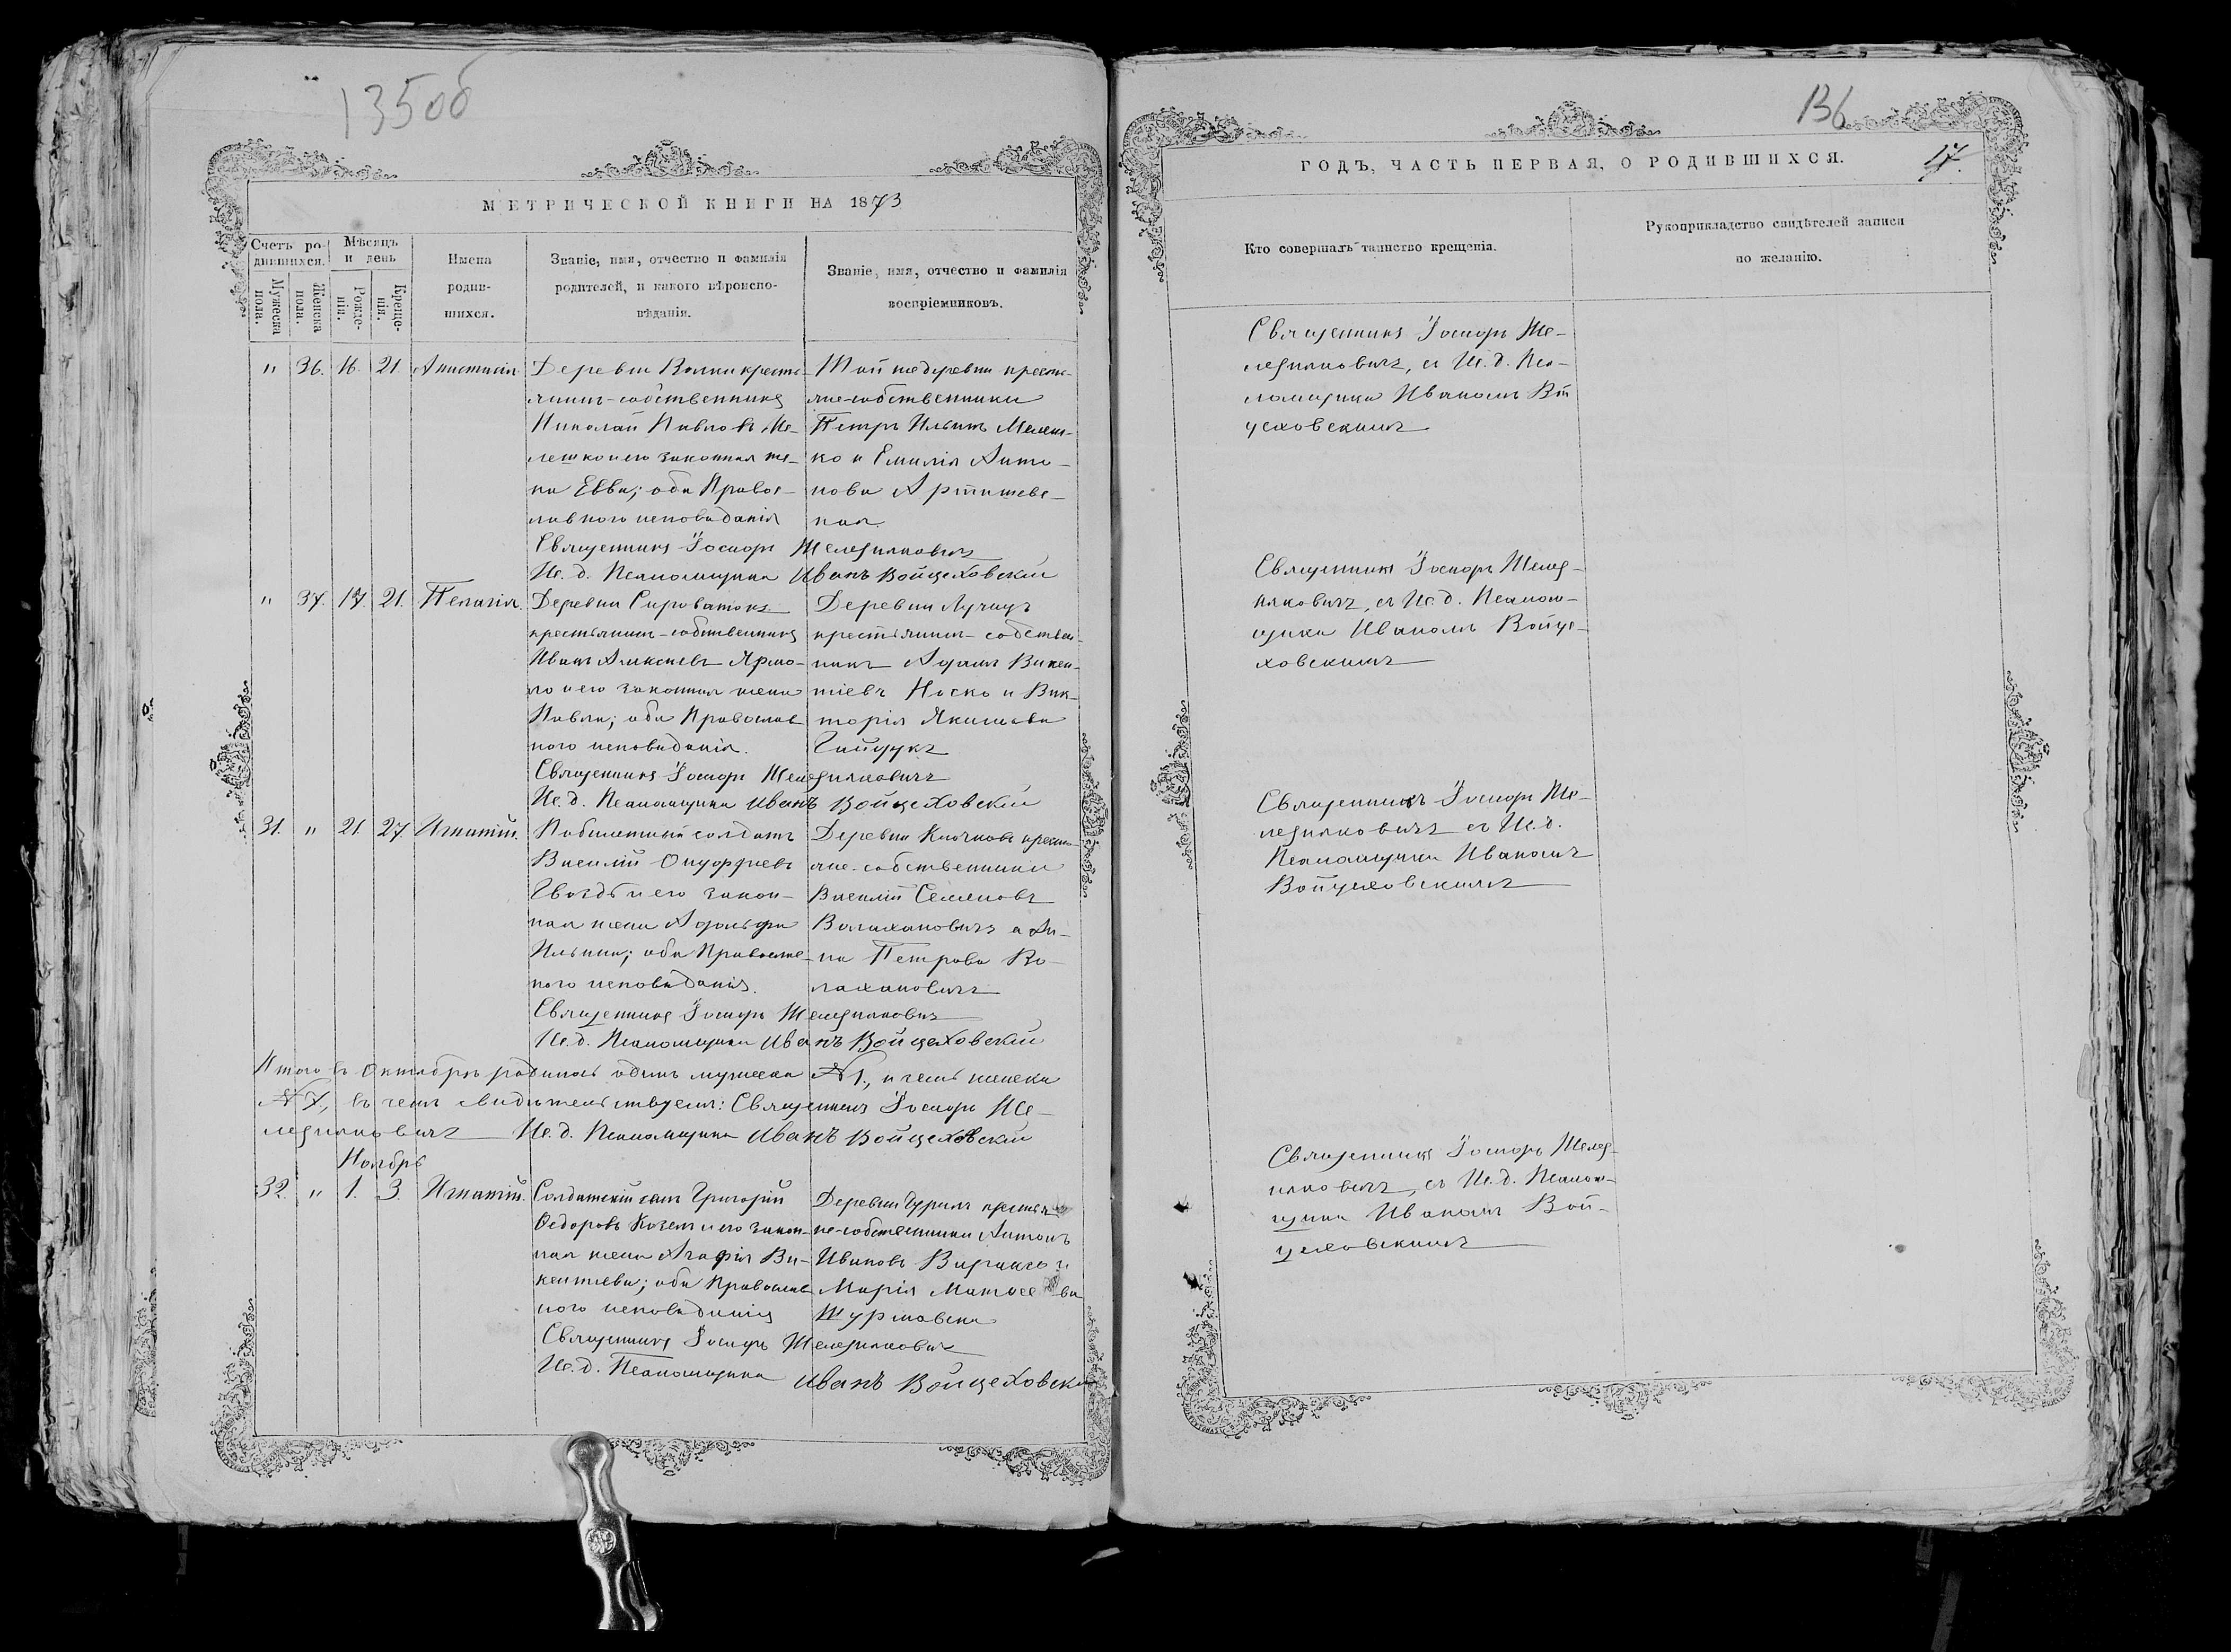 135об
МЕТРИЧЕСКОЙ КНИГИ НА 1873
Счетъ ро-
дившихся.
Мужеска
пола.
Женска
пола.
Мѣсяцъ
и день
Рожде-
нія.
Креще-
нія.
Имена
родив-
шихся.
Званіе, имя, отчество и фамилія
родителей, и какого вѣроиспо-
вѣданія.
Званіе, имя, отчество и фамилія
воспріемниковъ.
" 36. 16. 21. Анастасія
Деревни Волки кресть-
янинъ-собственникъ
Николай Павловъ Ме-
лешко и его законная же-
на Евва; оба Правос-
лавного исповѣданія
Той же деревни кресть-
яне-собственники
Петръ Ильинъ Мелеш-
ко и Емилія Анто-
нова
Священникъ Іосифъ Желѣзняковичъ
Ис. д. Псаломщика Иванъ Войцеховскій
" 37. 17. 21. Пелагія.
Деревни Сыроватокъ
крестьянинъ-собственникъ
Иванъ Алексѣевъ Ярмо-
ло и его законная жена
Павла; оба Православ
ного исповѣданія.
Деревни Лучицъ
крестьянинъ-собствен-
никъ Адамъ Викен-
тіевъ Носко и Вик-
торія Якимова
Гайдукъ
Священникъ Іосифъ Желѣзняковичъ
Ис. д. Псаломщика Иванъ Войцеховскій
31. " 21 27. Игнатій.
Побилетный солдатъ
Василій Онуфріевъ
Гвоздь и его закон-
ная жена Адольфа
Ильина; оба Правосла-
ного исповѣданія.
Деревни Клочково кресть-
яне-собственники
Василій Семеновъ
Волахановичъ и Ан-
на Петрова Во-
лахановичъ
Священникъ Іосифъ Желѣзняковичъ
Ис. д. Псаломщика Иванъ Войцеховскій
Итого въ Октябрѣ родилось одинъ мужеска № 1., и семь женска
№ 7., въ чемъ свидѣтельствуемъ: Священникъ Іосифъ Же-
лѣзняковичъ Ис. д. Псаломщика Иванъ Войцеховскій
Ноябрь
32. " 1. 3. Игнатій.
Солдатскій сынъ Григорій
Ѳедоровъ Козелъ и его закон-
ная жена Агафія Ви-
кентіева; оба Православ
ного исповѣданія
Деревни Чурилъ крестья
не-собственники Антонъ
Ивановъ Вираксо и
Марія Матвеева
Журмовска
Священникъ Іосифъ Желѣзняковичъ
Ис. д. Псаломщика Иванъ Войцеховскій
136
ГОДЪ, ЧАСТЬ ПЕРВАЯ, О РОДИВШИХСЯ.
17.
Кто совершалъ таинство крещенія.
Рукоприкладство свидѣтелей записи
по желанію.
Священникъ Іосифъ Же-
лѣзняковичъ, съ Ис. д. Пса-
ломщика Иваномъ Вой
цеховскимъ
Священникъ Іосифъ Желѣз-
няковичъ, съ Ис. д. Псалом-
щика Иваномъ Войце-
ховскимъ
Священникъ Іосифъ Же-
лѣзняковичъ съ Ис. д.
Псаломщика Иваномъ
Войцеховскимъ
Священникъ Іосифъ Желѣз-
няковичъ, съ Ис. д. Псалом-
щика Иваномъ Вой-
цеховскимъ